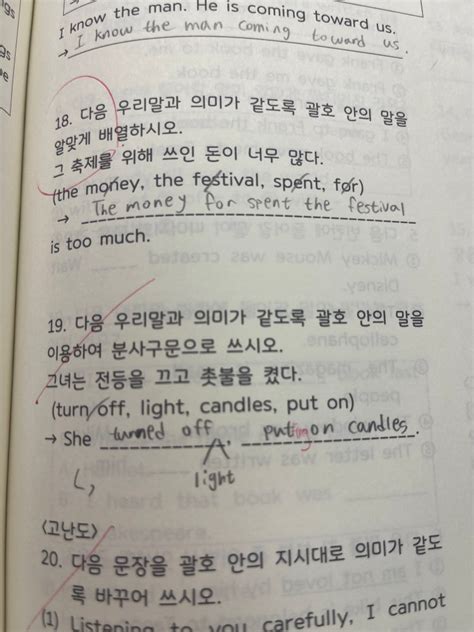 I know the man. He is coming toward us.
→ I know the man coming toward us.
18. 다음 우리말과 의미가 같도록 괄호 안의 말을
알맞게 배열하시오.
그 축제를 위해 쓰인 돈이 너무 많다.
(the money, the festival, spent, for)
→ The money for spent the festival
is too much.
19. 다음 우리말과 의미가 같도록 괄호 안의 말을
이용하여 분사구문으로 쓰시오.
그녀는 전등을 끄고 촛불을 켰다.
(turn off, light, candles, put on)
→ She turned off, putting on candles.
light
<고난도>
20. 다음 문장을 괄호 안의 지시대로 의미가 같도
록 바꾸어 쓰시오.
(1) Listening to you carefully, I cannot